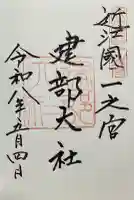 近江國一之宮
建部大社
令和八年五月四日